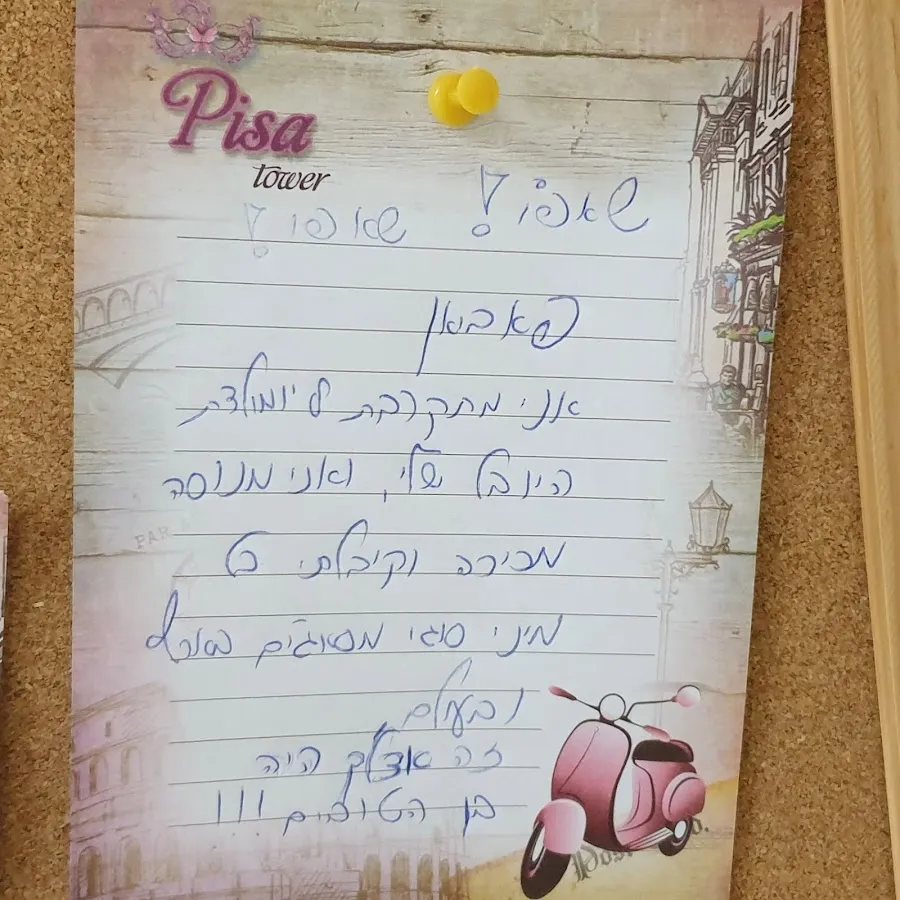 Pisa
tower
שאפו! שאפו!
פאביאן
אני מתקרבת ליומולדת
היובל שלי, ואני מנוסה
מכירה וקיבלתי כל
מיני סוגי מסאג'ים בארץ
ובעולם
זה אצלך היה
מן הטובים !!!
PAR